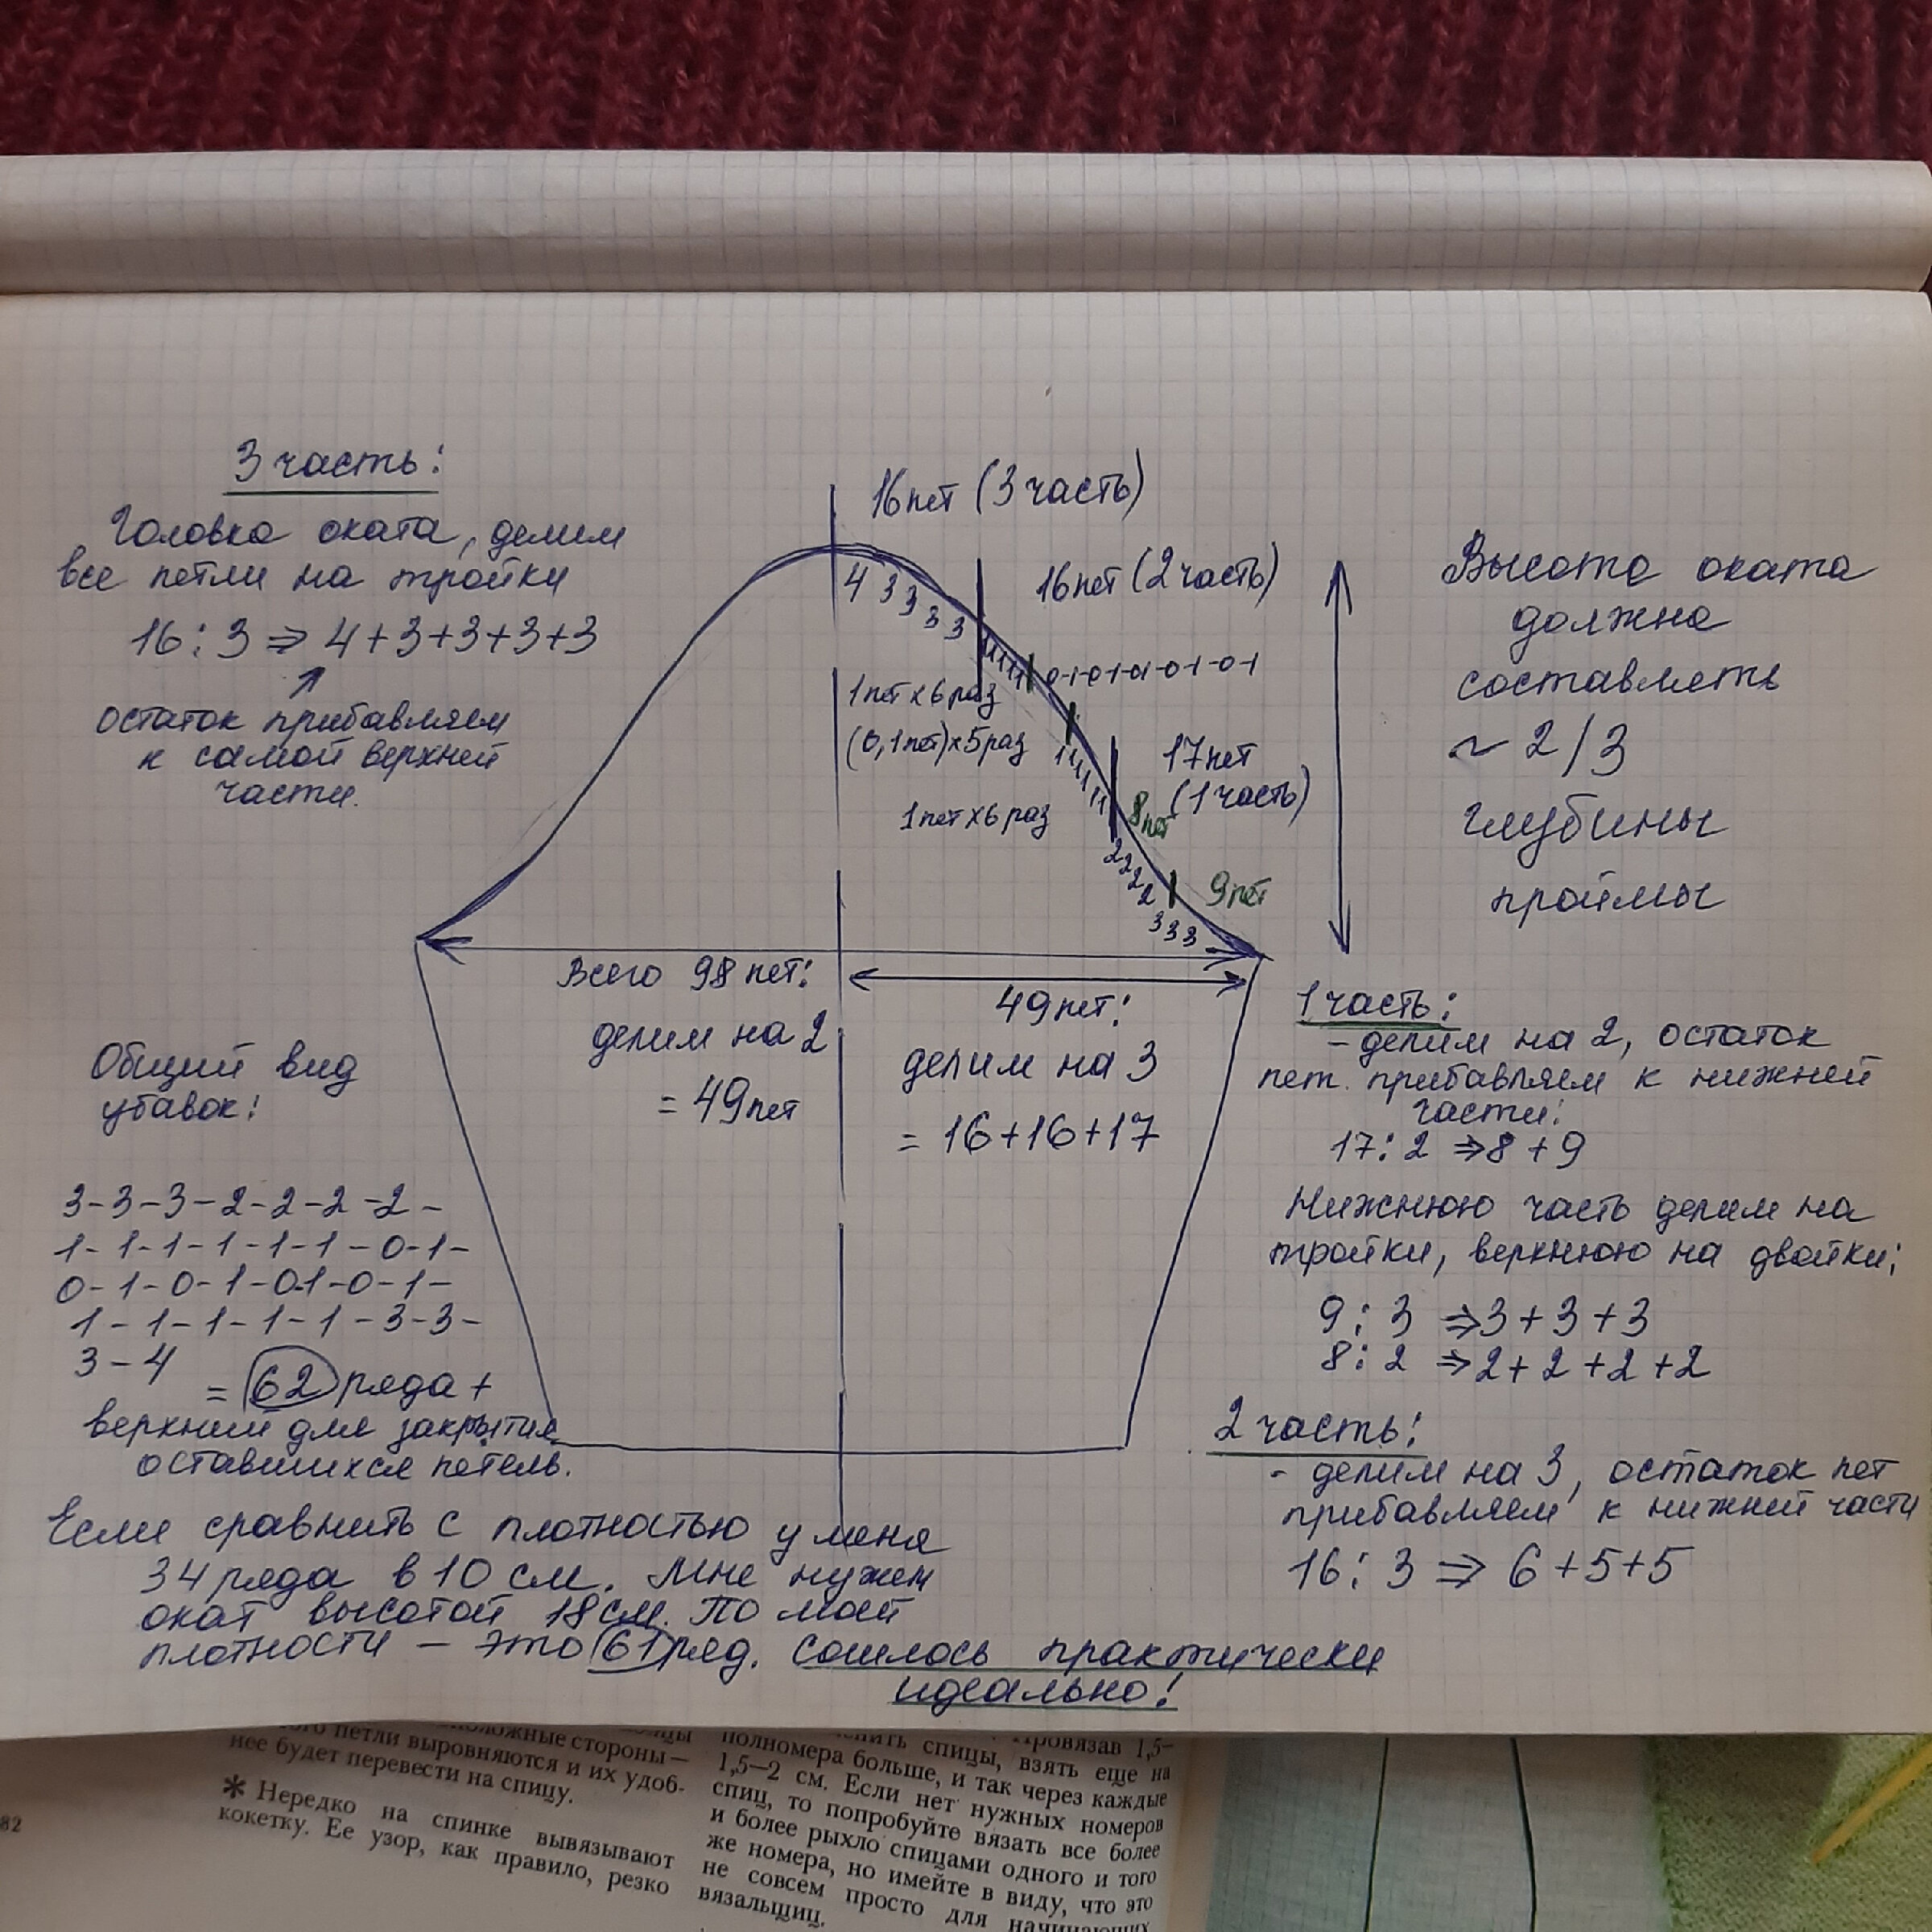 3 часть:
Головка оката, делим
все петли на тройки
16:3 ⇒ 4+3+3+3+3
остаток прибавляем
к самой верхней
части.
16 пет (3 часть)
16 пет (2 часть)
4 3 3 3 3
111111
0-1-0-1-01-0-1-0-1
1 пет × 6 раз
(0,1 пет) × 5 раз
17 пет
(1 часть)
111111
1 пет × 6 раз
8 пет
2 2 2 2
9 пет
3 3 3
Высота оката
должна
составлять
~ 2/3
глубины
проймы
Всего 98 пет:
делим на 2
= 49 пет
49 пет:
делим на 3
= 16+16+17
Общий вид
убавок:
3-3-3-2-2-2-2-
1-1-1-1-1-1-0-1-
0-1-0-1-01-0-1-
1-1-1-1-1-3-3-
3-4
= 62 ряда +
верхний для закрытия
оставшихся петель.
1 часть:
- делим на 2, остаток
пет. прибавляем к нижней
части:
17:2 ⇒ 8+9
Нижнюю часть делим на
тройки, верхнюю на двойки:
9:3 ⇒ 3+3+3
8:2 ⇒ 2+2+2+2
2 часть:
- делим на 3, остаток пет
прибавляем к нижней части
16:3 ⇒ 6+5+5
Если сравнить с плотностью у меня
34 ряда в 10 см. Мне нужен
окат высотой 18 см. По моей
плотности - это 61 ряд. Сошлось практически
идеально!
петли выровняются и их удоб-
нее будет перевести на спицу.
* Нередко на спинке вывязывают
кокетку. Ее узор, как правило, резко
82
спицы, взять еще на
полномера больше, и так через каждые
1,5—2 см. Если нет нужных номеров
спиц, то попробуйте вязать все более
и более рыхло спицами одного и того
же номера, но имейте в виду, что это
не совсем просто для начинающих
вязальщиц.